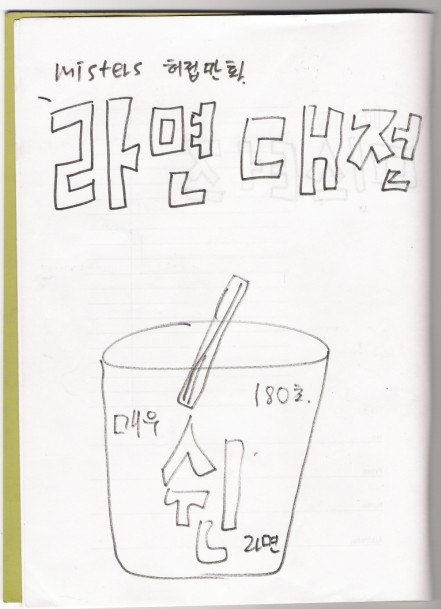 misters 허접만화
라면 대전
180초.
매우
쉰
라면